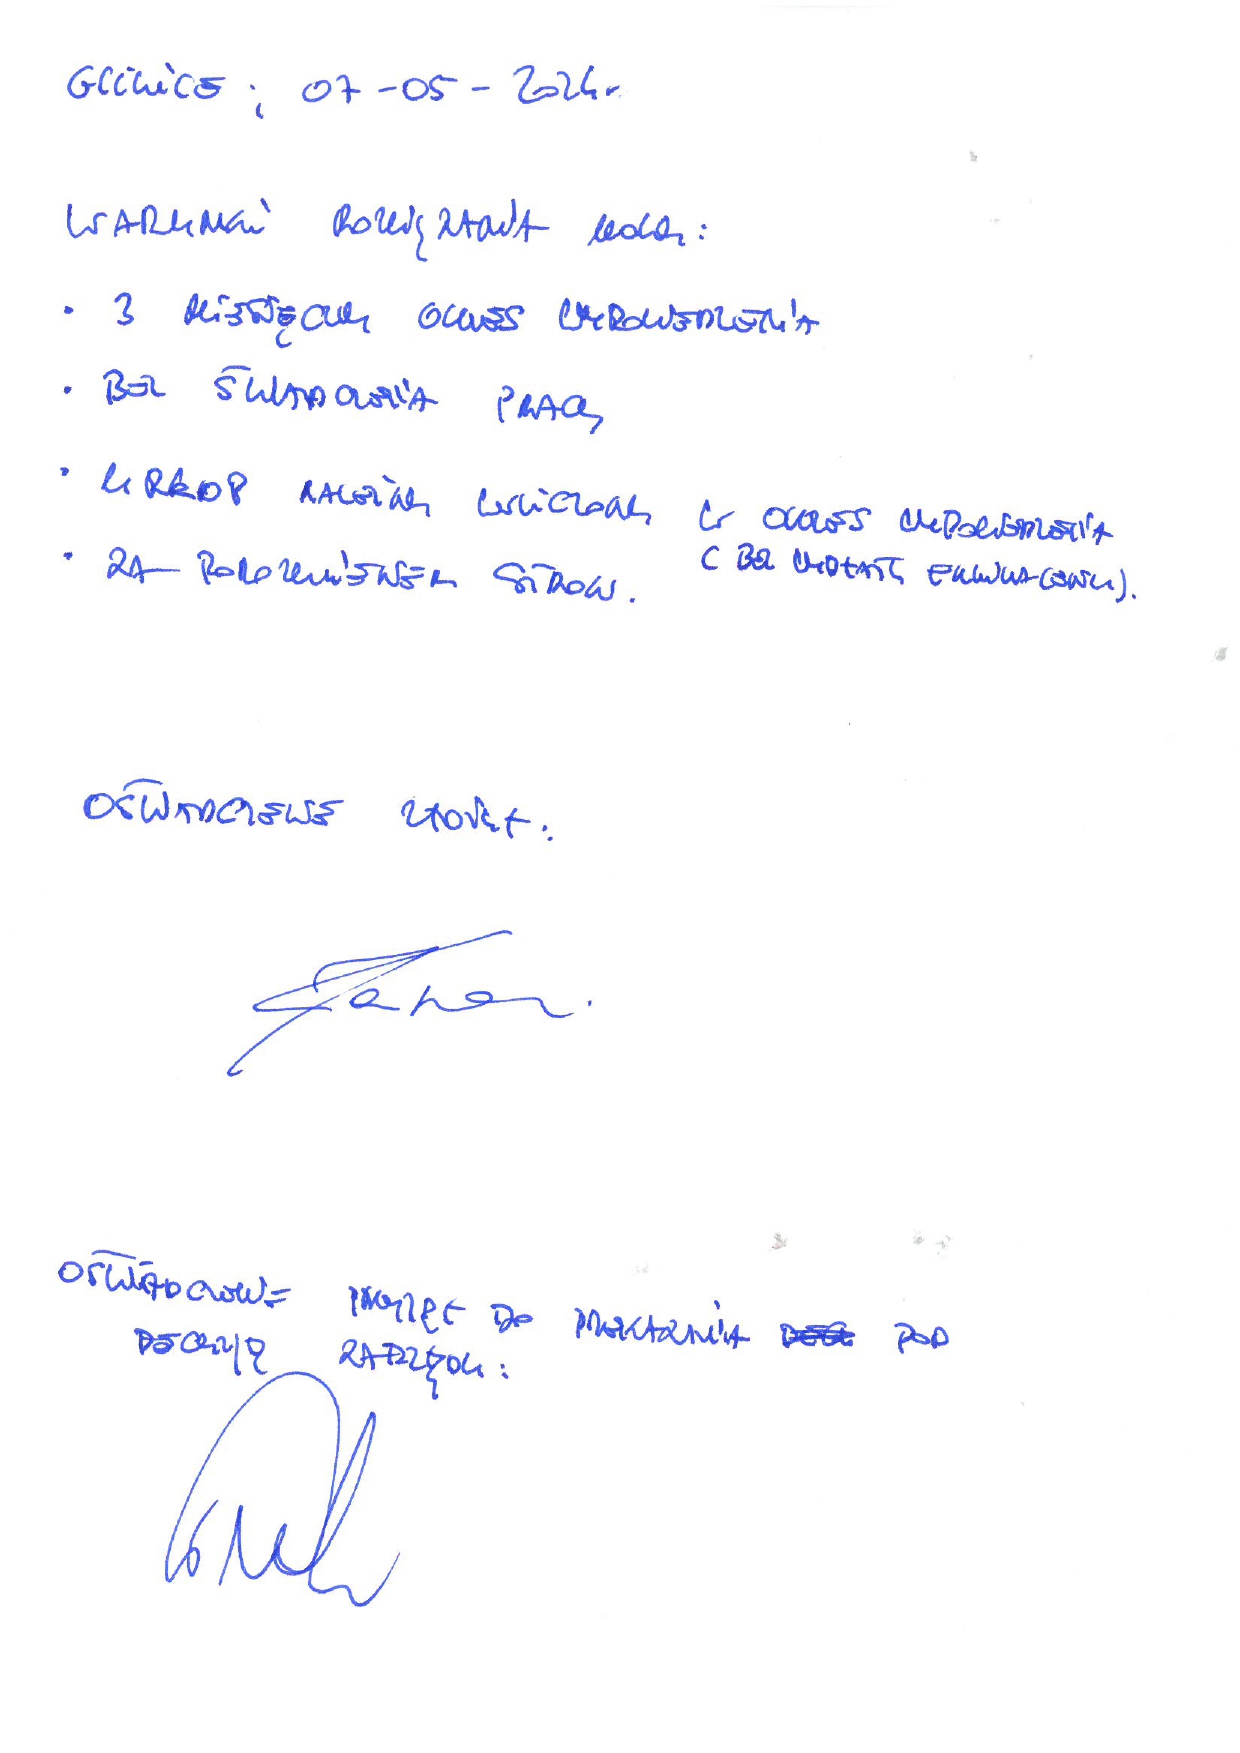 GLIWICE, 07-05-2024r.
WARUNKI ROZWIĄZANIA UMOWY:
• 3 MIESIĘCZNY OKRES WYPOWIEDZENIA
• BEZ ŚWIADCZENIA PRACY
• URLOP NALEŻNY WLICZONY W OKRES WYPOWIEDZENIA
( BEZ WYPŁATY EKWIWALENTU).
• ZA POROZUMIENIEM STRON.
OŚWIADCZENIE
OŚWIADCZENIE PRZYJĘTE DO PRZEKAZANIA POD
DECYZJĘ ZARZĄDU: